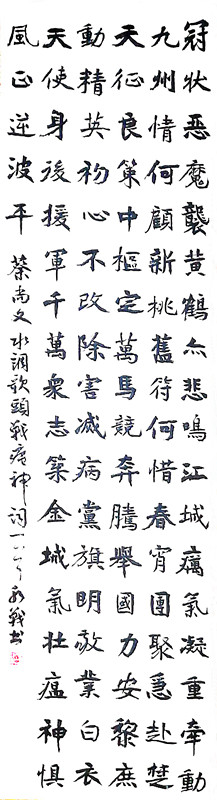 冠狀惡魔襲黄鶴亦悲鳴江城癘氣凝重牽動
九州情何顧新桃舊符何惜春宵團聚急赴楚
天征良策中樞定萬馬競奔騰舉國力安黎庶
動精英初心不改除害滅病黨旗明敬業白衣
天使身後援軍千萬衆志築金城氣壯瘟神懼
風正逆波平
蔡尚文水調歌頭戰瘟神詞一首 書